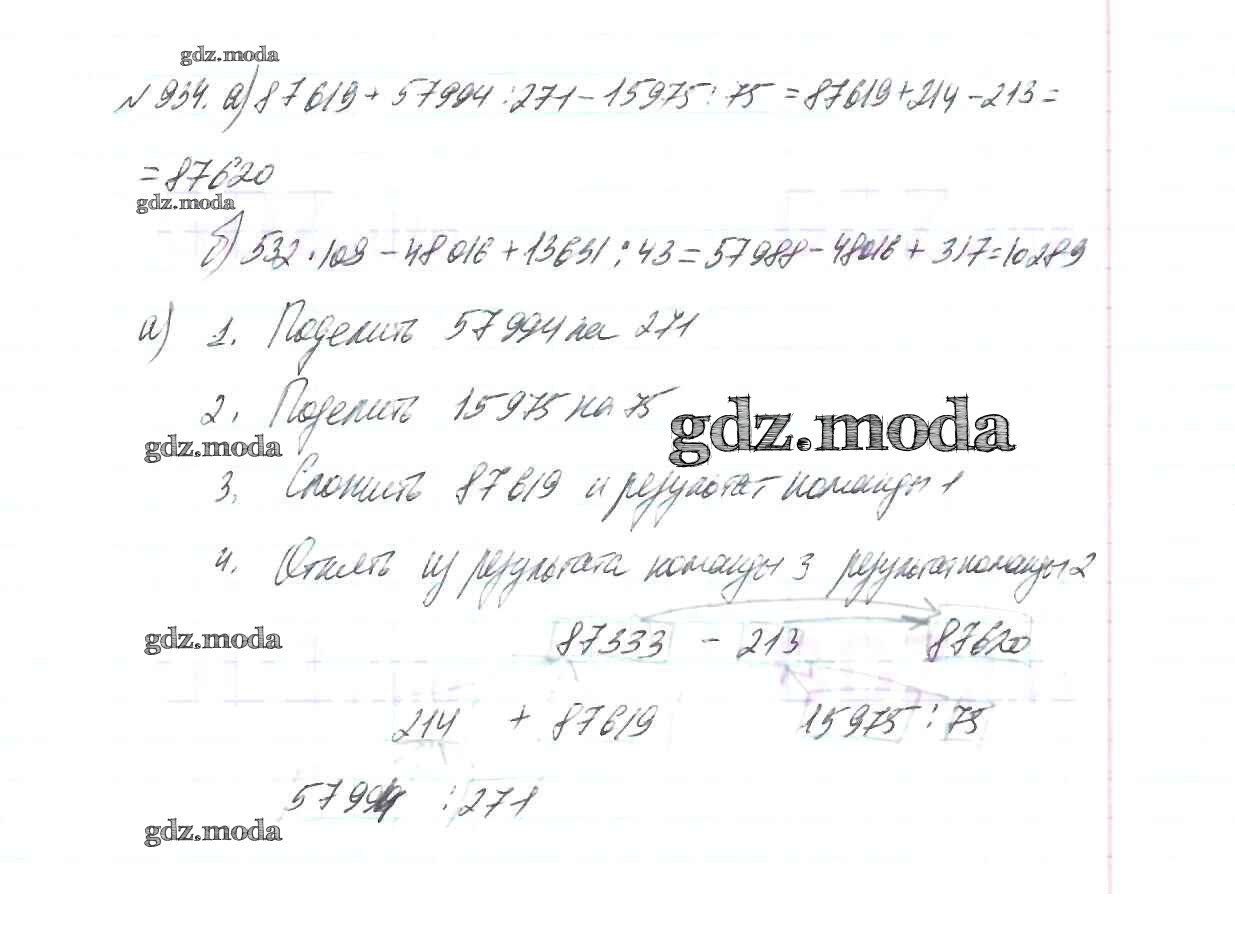 gdz.moda
№ 934. а) 87619 + 57994 : 271 - 15975 : 75 = 87619 + 214 - 213 =
= 87620
gdz.moda
б) 532 · 109 - 48016 + 13631 : 43 = 57988 - 48016 + 317 = 10289
а) 1. Поделить 57994 на 271
2. Поделить 15975 на 75
gdz.moda
gdz.moda
3. Сложить 87619 и результат команды 1
4. Отнять из результата команды 3 результат команды 2
gdz.moda
87333 - 213 87620
214 + 87619 15975 : 75
57994 : 271
gdz.moda